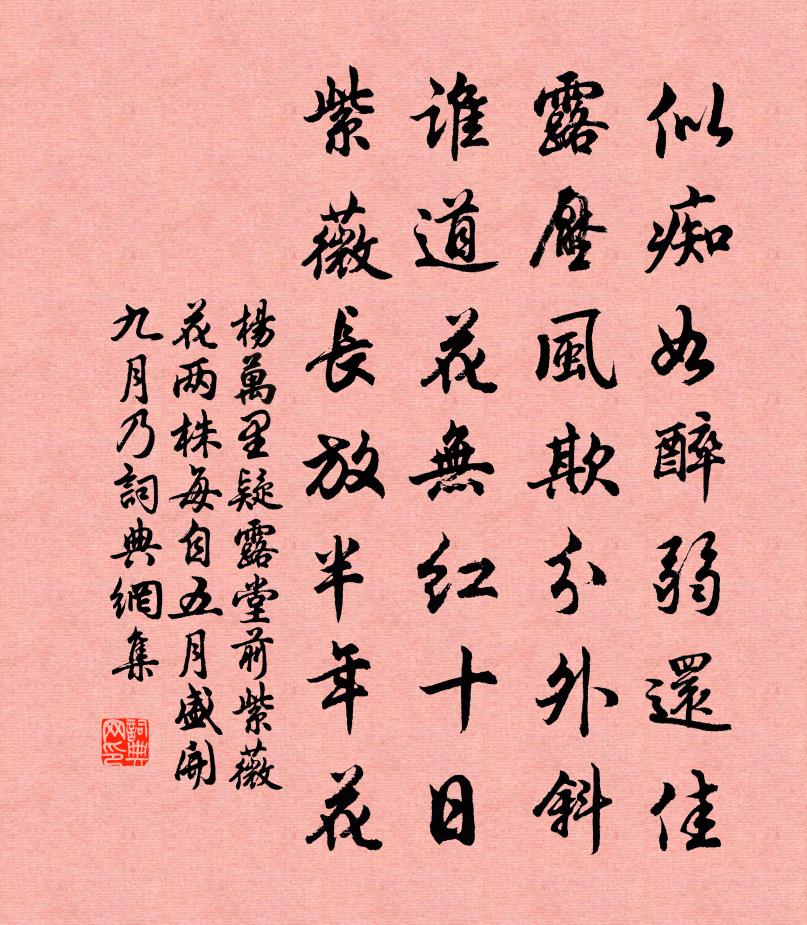 似痴如醉弱還佳
露壓風欺分外斜
誰道花無紅十日
紫薇長放半年花
楊萬里疑露堂前紫薇
花两株每自五月盛開
九月乃詞典網集
詞典
网印